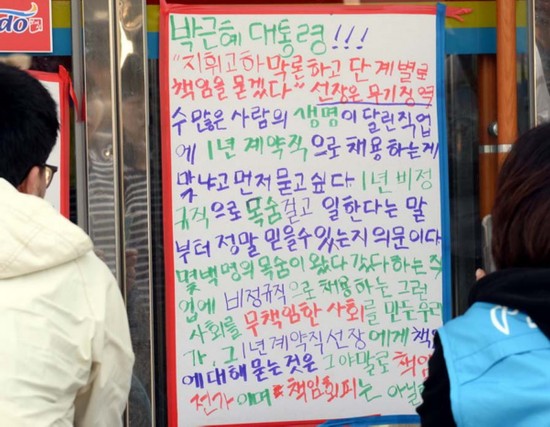 do
박근혜 대통령!!!
"지휘고하 막론하고 단계별로
책임을 묻겠다" 선장은 무기징역
수많은 사람의 생명이 달린직업
에 1년 계약직으로 채용하는게
맞냐고 먼저 묻고싶다 1년 비정
규직으로 목숨걸고 일한다는 말
부터 정말 믿을수있는지 의문이다
몇백명의 목숨이 왔다갔다하는 직
업에 비정규직으로 채용하는 그런
사회를 무책임한 사회를 만든 우리
가, 그 1년계약직선장에게 책임
에 대해 묻는것은 그야말로 책임
전가 이며 책임회피는 아닐